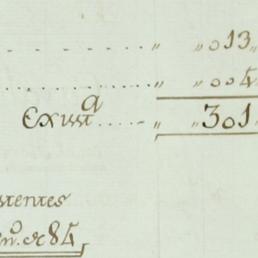 ..... „ „013„
..... „ „004
Exist^a..... „ „301„
istentes
en.^o de 84,